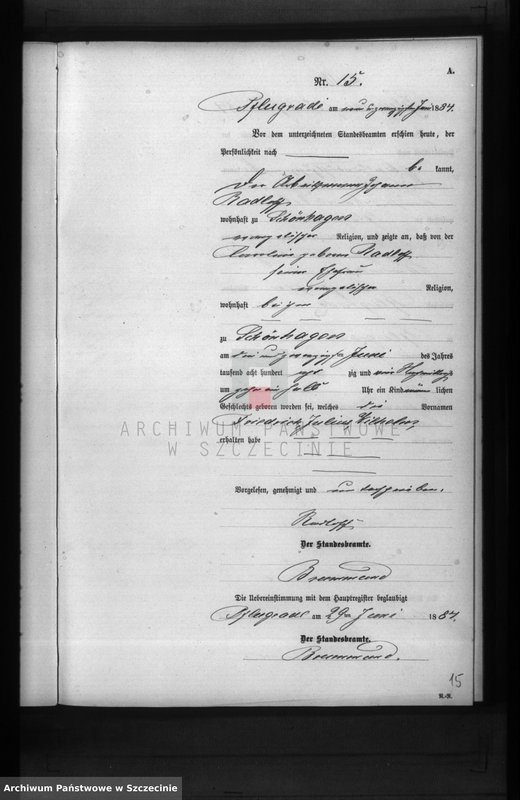 A.
Nr. 15.
Pflugrade am neun u zwanzigsten Juni 1884.
Vor dem unterzeichneten Standesbeamten erschien heute, der
Persönlichkeit nach
be kannt,
der Arbeitsmann Johann
Radloff
wohnhaft zu Schönhagen
evangelischer Religion, und zeigte an, daß von der
Caroline geborene Radloff
seiner Ehefrau
evangelischer Religion,
wohnhaft bei ihm
zu Schönhagen
am drei und zwanzigsten Juni des Jahres
tausend acht hundert acht zig und vier Nachmittags
um ein halb Uhr ein Kind männ lichen
Geschlechts geboren worden sei, welches die Vornamen
Friedrich Julius Wilhelm
erhalten habe
ARCHIWUM PAŃSTWOWE
W SZCZECINIE
Vorgelesen, genehmigt und unterschrieben.
Radloff
Der Standesbeamte.
Die Uebereinstimmung mit dem Hauptregister beglaubigt
Pflugrade am 29ten Juni 1884.
Der Standesbeamte.
15
R.-R.
Archiwum Państwowe w Szczecinie